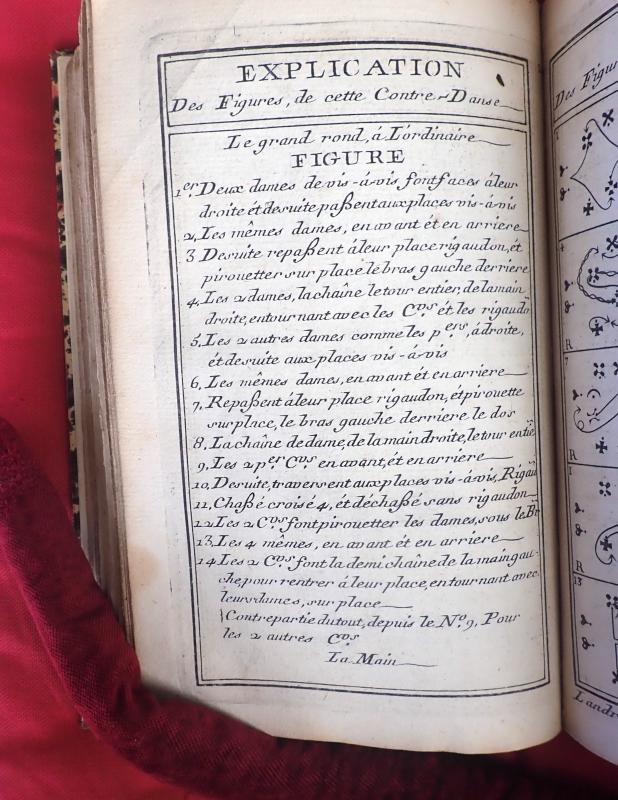 EXPLICATION
Des Figures, de cette Contre-Danse
Le grand rond, á L'ordinaire
FIGURE
1.er Deux dames de vis-á-vis font faces áleur
droite ét desuite paßent aux places vis-á-vis
2, Les mêmes dames, en avant ét en arriere
3 Desuite repaßent áleur place rigaudon, ét
pirouetter sur place le bras gauche derriere
4, Les 2 dames, la chaîne le tour entier, de la main
droite, en tournant avec les C.vrs ét les rigaudō
5, Les 2 autres dames comme les p.ers, á droite,
ét desuite aux places vis-á-vis
6, Les mêmes dames, en avant ét en arriere
7, Repaßent áleur place rigaudon, ét pirouette
sur place, le bras gauche derriere le dos
8, La chaîne de dame, de la main droite, le tour entiē
9, Les 2 p.er C.vrs en avant, ét en arriere
10, Desuite, traversent aux places vis-á-vis, Rigaū
11, Chaßé croisé 4, ét déchaßé sans rigaudon
12 Les 2 C.vrs font pirouetter les dames, sous le Br
13, Les 4 mêmes, en avant ét en arriere
14 Les 2 C.vrs font la demi chaîne de la main gau-
che, pour rentrer á leur place, en tournant avec
leurs dames, sur place
Contrepartie du tout, depuis le N.o 9, Pour
les 2 autres C.vrs
La Main
Des Figu
4
R
7
R
1
13
Landr